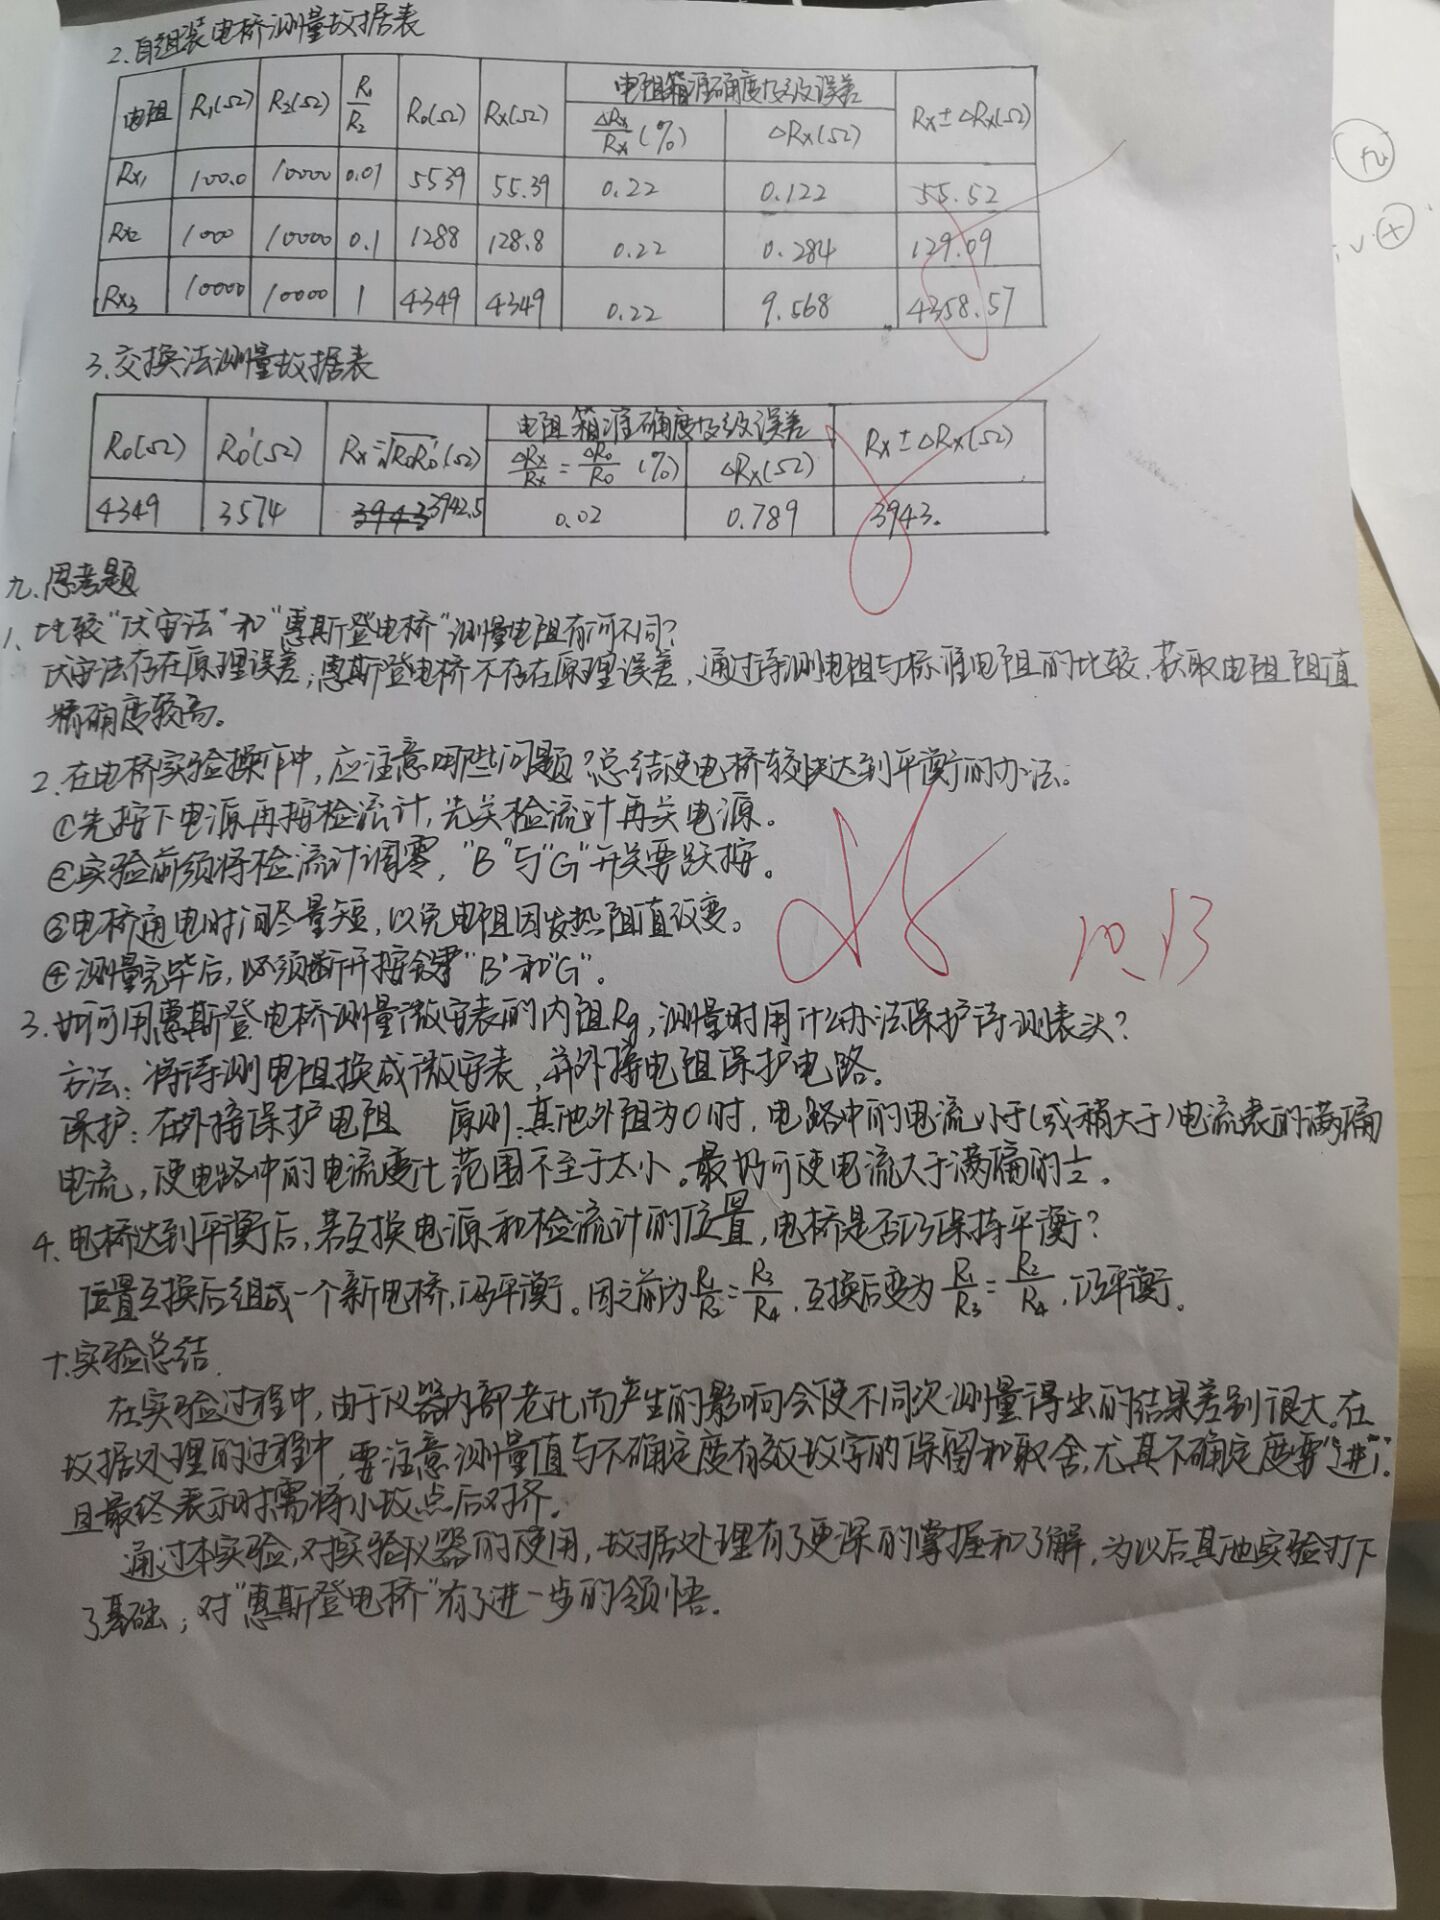 2.自组装电桥测量数据表
电阻 R₁(Ω) R₂(Ω) R₁/R₂ R₀(Ω) Rx(Ω) 电阻箱准确度等级误差 Rx±△Rx(Ω)
△Rx/Rx(%) △Rx(Ω)
Rx₁ 100.0 10000 0.01 5539 55.39 0.22 0.122 55.52
Rx₂ 1000 10000 0.1 1288 128.8 0.22 0.284 129.09
Rx₃ 10000 10000 1 4349 4349 0.22 9.568 4358.57
3.交换法测量数据表
R₀(Ω) R₀'(Ω) Rx=√R₀R₀'(Ω) 电阻箱准确度等级误差 Rx±△Rx(Ω)
△Rx/Rx=△R₀/R₀(%) △Rx(Ω)
4349 3574 3943 3942.5 0.02 0.789 3943.
九.思考题
1.比较"伏安法"和"惠斯登电桥"测量电阻有何不同?
伏安法存在原理误差;惠斯登电桥不存在原理误差,通过待测电阻与标准电阻的比较,获取电阻阻值
精确度较高。
2.在电桥实验操作中,应注意哪些问题?总结使电桥较快达到平衡的办法。
①先按下电源再按检流计,先关检流计再关电源。
②实验前须将检流计调零,"B"与"G"开关要跃按。
③电桥通电时间尽量短,以免电阻因发热阻值改变。
④测量完毕后,必须断开按键"B"和"G"。
10.13
3.如何用惠斯登电桥测量微安表的内阻Rg,测量时用什么办法保护待测表头?
方法:将待测电阻换成微安表,并外接电阻保护电路。
保护:在外接保护电阻 原则:其他外阻为0时,电路中的电流小于(或稍大于)电流表的满偏
电流,使电路中的电流变化范围不至于太小。最好可使电流大于满偏的½。
4.电桥达到平衡后,若互换电源和检流计的位置,电桥是否仍保持平衡?
位置互换后组成一个新电桥,仍平衡。因之前为R₁/R₂=R₃/R₄,互换后变为R₁/R₃=R₂/R₄,仍平衡。
十.实验总结.
在实验过程中,由于仪器内部老化而产生的影响会使不同次测量得出的结果差别很大。在
数据处理的过程中,要注意测量值与不确定度有效数字的保留和取舍,尤其不确定度要"进1".
且最终表示时需将小数点后对齐。
通过本实验,对实验仪器的使用,数据处理有了更深的掌握和了解,为以后其他实验打下
了基础;对"惠斯登电桥"有了进一步的领悟.